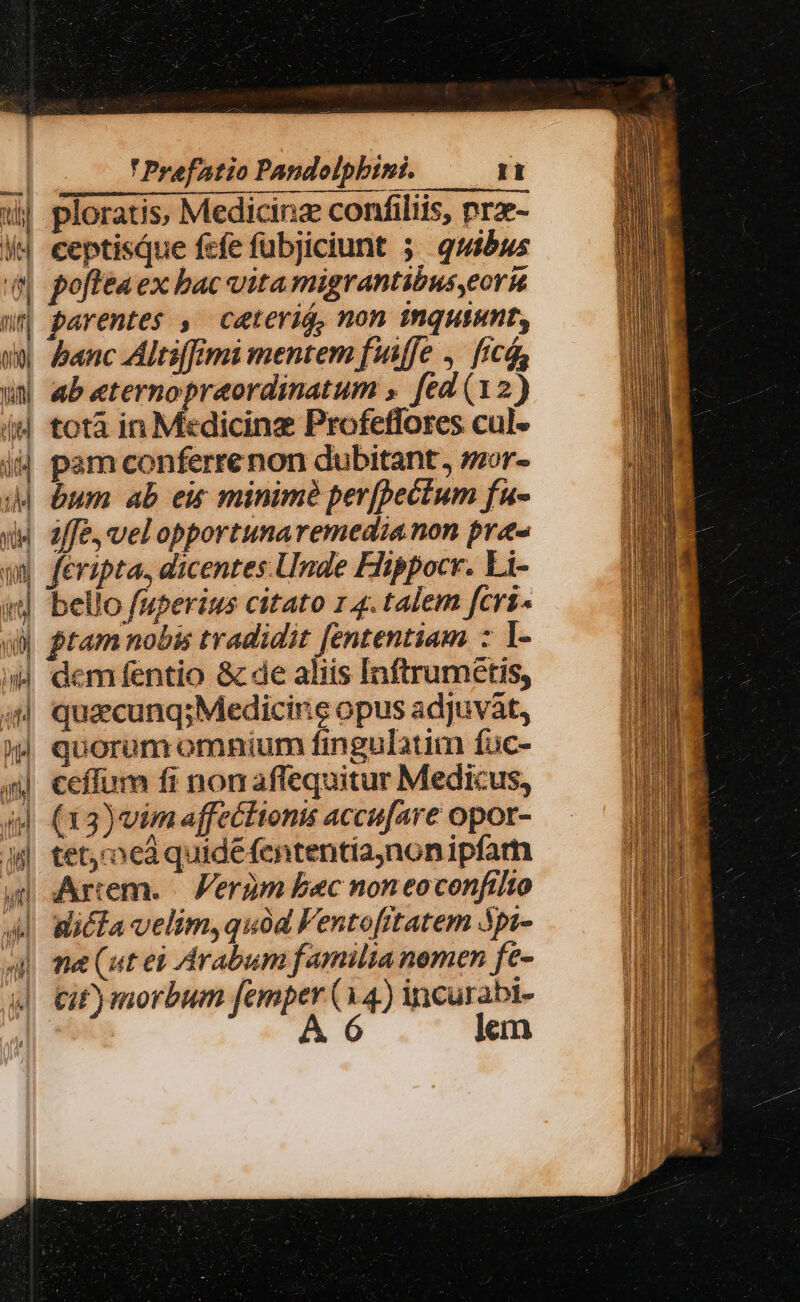 Præfatio Pandolphini. 11
ploratis, Medicinæ conſiliis, præ-
ceptisq́ue ſeſe ſubjiciunt ; quibus
poſtea ex hac vita migrantibus, eorū
parentes , cæteriq́, non inquiunt,
hanc Altiſſimi mentem fuiſſe , ſicq́,
ab æternopræordinatum , ſed (12)
totâ in Medicinæ Profeſſores cul-
pam conferre non dubitant, mor-
bum ab eis minimè perſpectum fu-
iſſe, vel opportuna remedia non præ-
ſcripta, dicentes. Unde Hippocr. Li-
bello ſuperius citato 14. talem ſcri-
ptam nobis tradidit ſententiam : I-
dem ſentio & de aliis Inſtrumētis,
quæcunq; Medicinæ opus adjuvāt,
quorum omnium ſingulatim ſuc-
ceſſum ſi non aſſequitur Medicus,
(13) vim affectionis accuſare opor-
tet, meâ quidē ſententia, non ipſam
Artem. Verùm hæc non eo conſilio
dicta velim, quòd Ventoſitatem Spi-
næ (ut ei Arabum familia nomen fe-
cit) morbum ſemper (14) incurabi-
A 6 lem